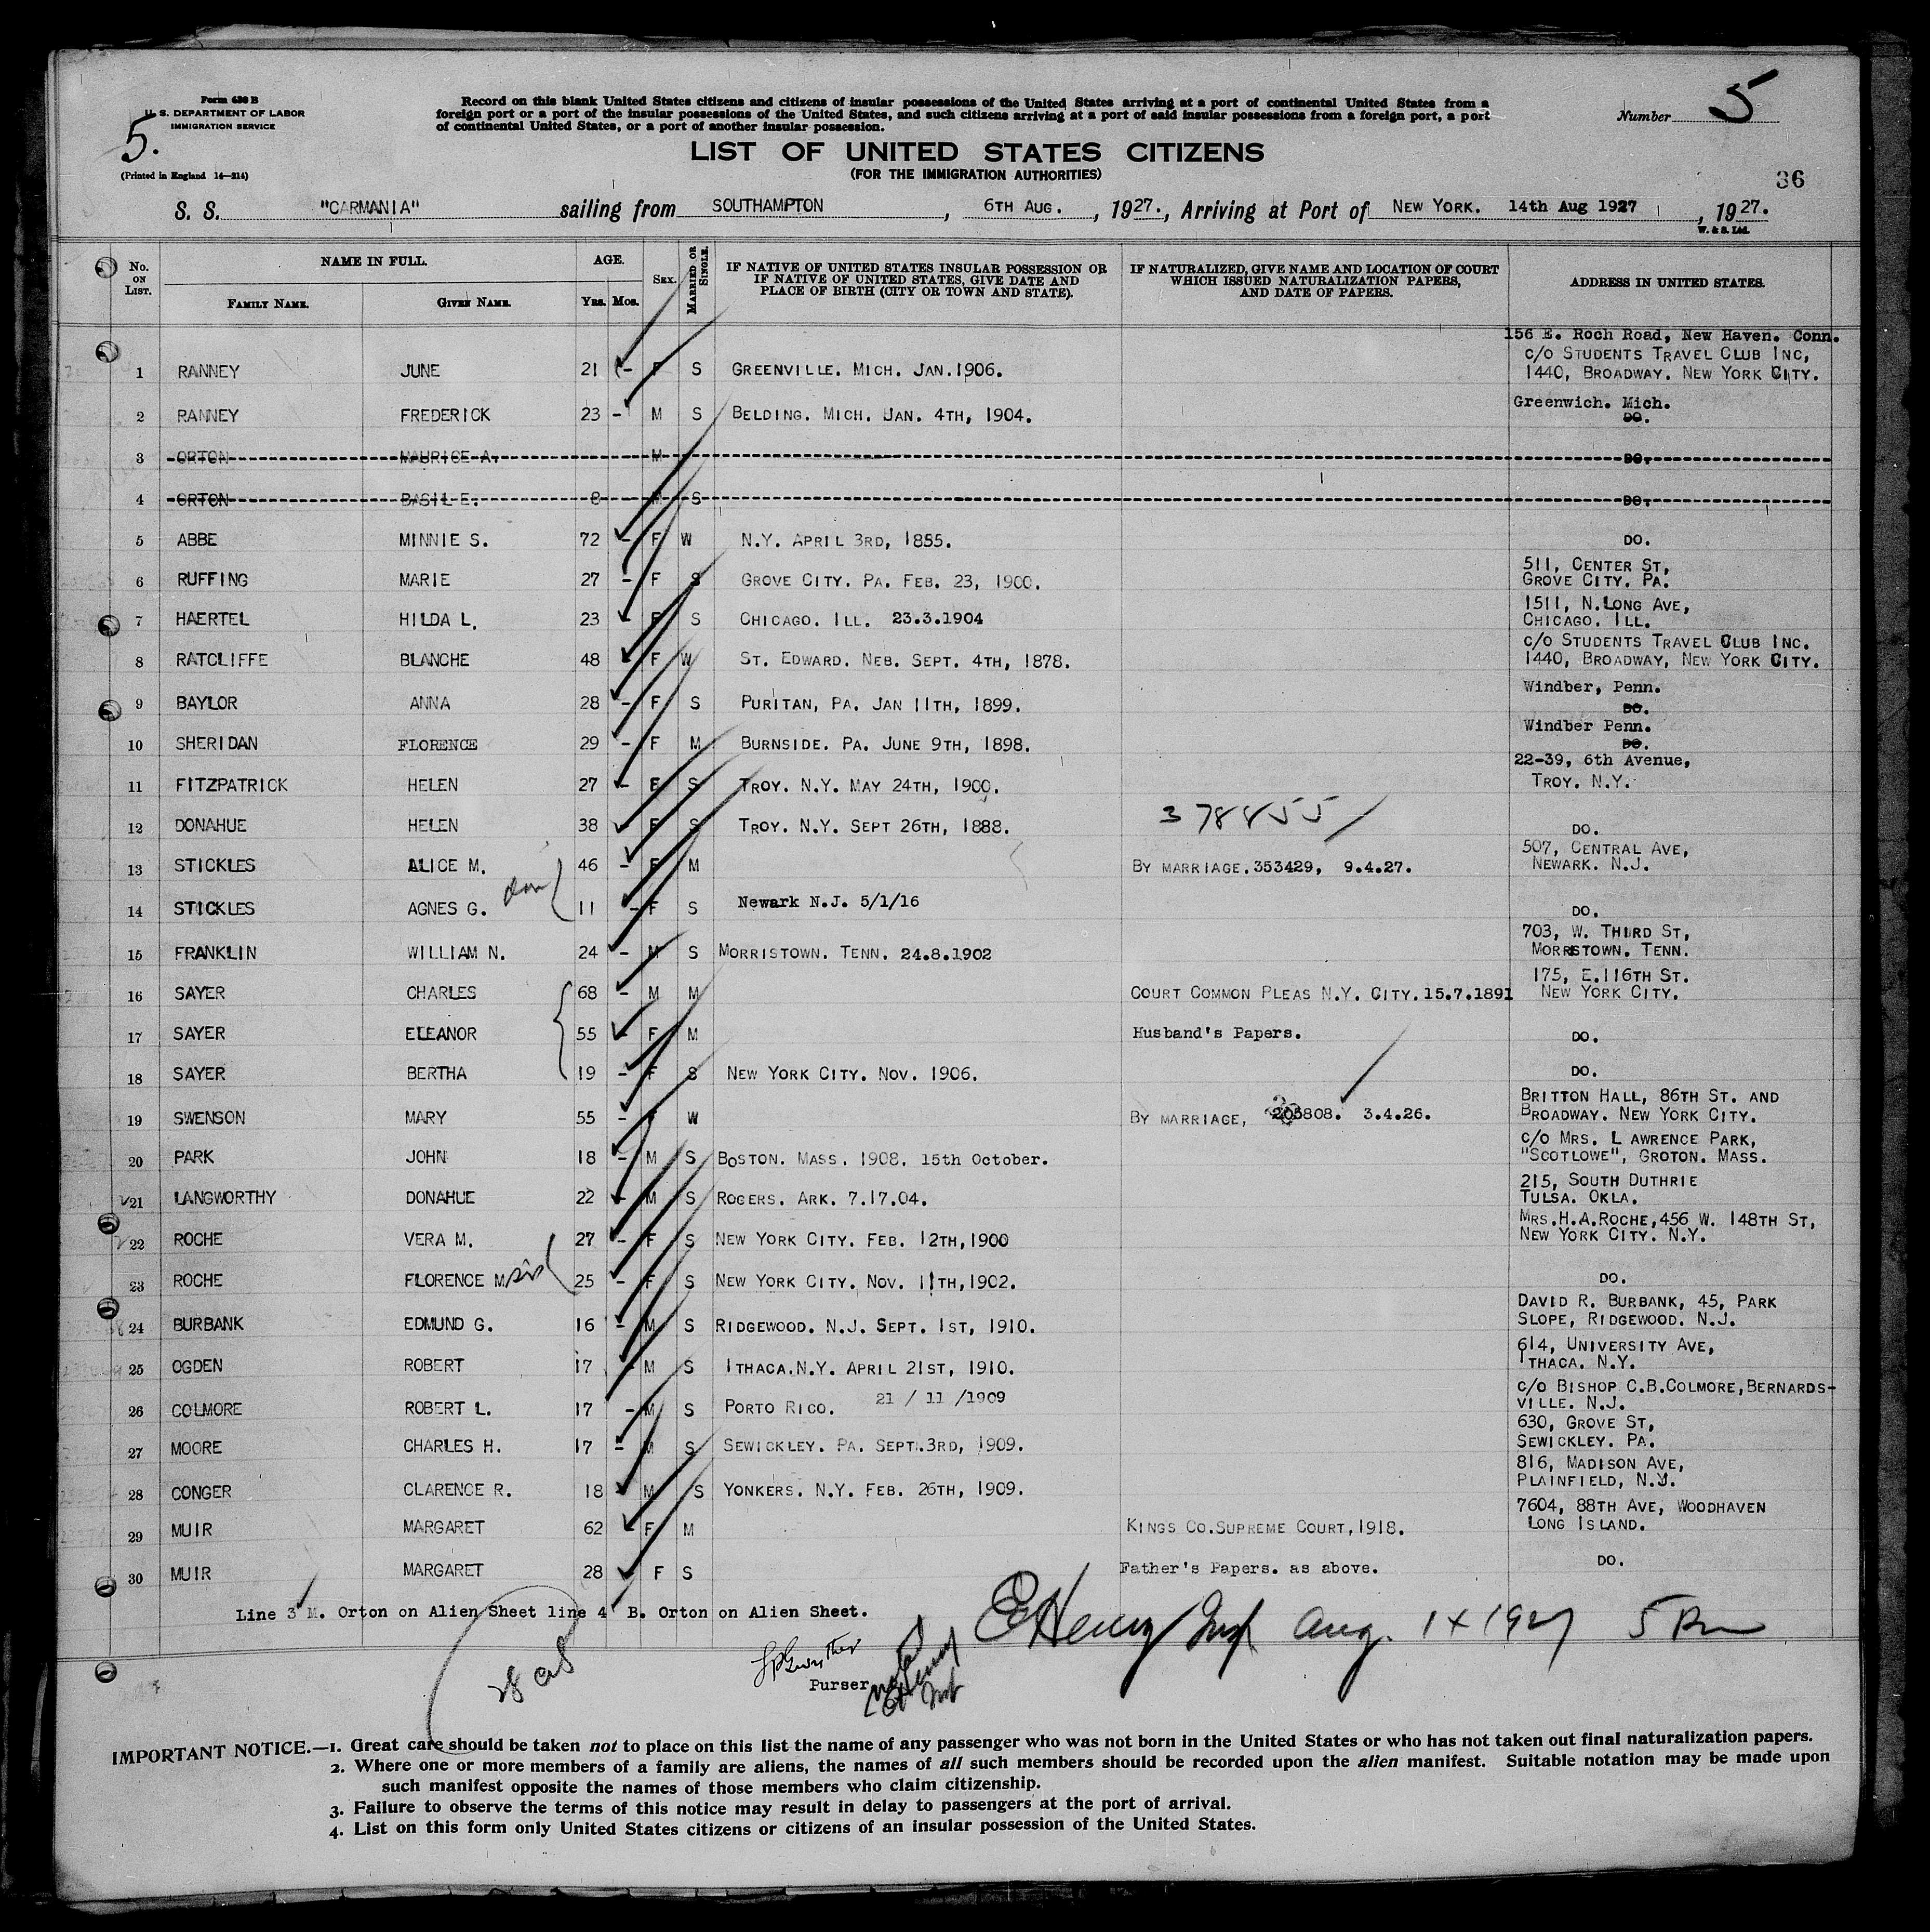 Form 630 B
U. S. DEPARTMENT OF LABOR
IMMIGRATION SERVICE
5.
(Printed in England 14—214)
Record on this blank United States citizens and citizens of insular possessions of the United States arriving at a port of continental United States from a
foreign port or a port of the insular possessions of the United States, and such citizens arriving at a port of said insular possessions from a foreign port, a port
of continental United States, or a port of another insular possession.
Number 5
LIST OF UNITED STATES CITIZENS
(FOR THE IMMIGRATION AUTHORITIES)
36
S. S. "CARMANIA" sailing from SOUTHAMPTON, 6TH AUG., 1927., Arriving at Port of NEW YORK. 14th Aug 1927, 1927.
W. & S. Ltd.
No. ON LIST. NAME IN FULL. FAMILY NAME. GIVEN NAME. AGE. YRS. MOS. SEX. MARRIED OR SINGLE. IF NATIVE OF UNITED STATES INSULAR POSSESSION OR IF NATIVE OF UNITED STATES, GIVE DATE AND PLACE OF BIRTH (CITY OR TOWN AND STATE). IF NATURALIZED, GIVE NAME AND LOCATION OF COURT WHICH ISSUED NATURALIZATION PAPERS, AND DATE OF PAPERS. ADDRESS IN UNITED STATES.
156 E. Roch Road, New Haven. Conn.
C/O STUDENTS TRAVEL CLUB INC,
1 RANNEY JUNE 21 - F S GREENVILLE. MICH. JAN.1906. 1440, BROADWAY. NEW YORK CITY.
Greenwich. Mich.
2 RANNEY FREDERICK 23 - M S BELDING. MICH. JAN. 4TH, 1904. DO.
3 ORTON MAURICE A. M DO.
4 ORTON BASIL E. 8 M S DO.
5 ABBE MINNIE S. 72 - F W N.Y. APRIL 3RD, 1855. DO.
511, CENTER ST,
6 RUFFING MARIE 27 - F S GROVE CITY. PA. FEB. 23, 1900. GROVE CITY. PA.
1511, N.LONG AVE,
7 HAERTEL HILDA L. 23 - F S CHICAGO. ILL. 23.3.1904 CHICAGO. ILL.
C/O STUDENTS TRAVEL CLUB INC.
8 RATCLIFFE BLANCHE 48 - F W ST. EDWARD. NEB. SEPT. 4TH, 1878. 1440, BROADWAY, NEW YORK CITY.
Windber, Penn.
9 BAYLOR ANNA 28 - F S PURITAN, PA. JAN 11TH, 1899. DO.
Windber Penn.
10 SHERIDAN FLORENCE 29 - F M BURNSIDE. PA. JUNE 9TH, 1898. DO.
22-39, 6th Avenue,
11 FITZPATRICK HELEN 27 - F S TROY. N.Y. MAY 24TH, 1900. TROY. N.Y.
378855
12 DONAHUE HELEN 38 - F S TROY. N.Y. SEPT 26TH, 1888. DO.
507, CENTRAL AVE,
13 STICKLES ALICE M. 46 - F M BY MARRIAGE. 353429, 9.4.27. NEWARK. N.J.
14 STICKLES AGNES G. 11 - F S Newark N.J. 5/1/16 DO.
703, W. THIRD ST,
15 FRANKLIN WILLIAM N. 24 - M S MORRISTOWN. TENN. 24.8.1902 MORRSTOWN. TENN.
175, E.116TH ST.
16 SAYER CHARLES 68 - M M COURT COMMON PLEAS N.Y. CITY. 15.7.1891 NEW YORK CITY.
17 SAYER ELEANOR 55 - F M Husband's Papers. DO.
18 SAYER BERTHA 19 - F S NEW YORK CITY. NOV. 1906. DO.
BRITTON HALL, 86TH ST. AND
19 SWENSON MARY 55 - F W BY MARRIAGE, 205808. 3.4.26. BROADWAY. NEW YORK CITY.
C/O MRS. L AWRENCE PARK,
20 PARK JOHN 18 - M S BOSTON. MASS. 1908. 15th October. "SCOTLOWE", GROTON. MASS.
215, SOUTH DUTHRIE
21 LANGWORTHY DONAHUE 22 - M S ROGERS. ARK. 7.17.04. TULSA. OKLA.
MRS.H.A.ROCHE,456 W. 148TH ST,
22 ROCHE VERA M. 27 - F S NEW YORK CITY. FEB. 12TH,1900 NEW YORK CITY. N.Y.
23 ROCHE FLORENCE M. sis 25 - F S NEW YORK CITY. NOV. 11TH,1902. DO.
DAVID R. BURBANK, 45, PARK
24 BURBANK EDMUND G. 16 - M S RIDGEWOOD. N.J. SEPT. 1ST, 1910. SLOPE, RIDGEWOOD. N.J.
614, UNIVERSITY AVE,
25 OGDEN ROBERT 17 - M S ITHACA.N.Y. APRIL 21ST, 1910. ITHACA. N.Y.
C/O BISHOP C.B.COLMORE,BERNARDS-
26 COLMORE ROBERT L. 17 - M S PORTO RICO. 21 / 11 /1909 VILLE. N.J.
630, GROVE ST,
27 MOORE CHARLES H. 17 - M S SEWICKLEY. PA. SEPT.3RD, 1909. SEWICKLEY. PA.
816, MADISON AVE,
28 CONGER CLARENCE R. 18 - M S YONKERS. N.Y. FEB. 26TH, 1909. PLAINFIELD, N.J.
7604, 88TH AVE, WOODHAVEN
29 MUIR MARGARET 62 - F M KINGS CO.SUPREME COURT,1918. LONG ISLAND.
30 MUIR MARGARET 28 - F S Father's Papers. as above. DO.
Line 3 M. Orton on Alien Sheet line 4 B. Orton on Alien Sheet.
E Henry Insp Aug. 14 1927 5 Pm
Purser
IMPORTANT NOTICE.—1. Great care should be taken not to place on this list the name of any passenger who was not born in the United States or who has not taken out final naturalization papers.
2. Where one or more members of a family are aliens, the names of all such members should be recorded upon the alien manifest. Suitable notation may be made upon
such manifest opposite the names of those members who claim citizenship.
3. Failure to observe the terms of this notice may result in delay to passengers at the port of arrival.
4. List on this form only United States citizens or citizens of an insular possession of the United States.